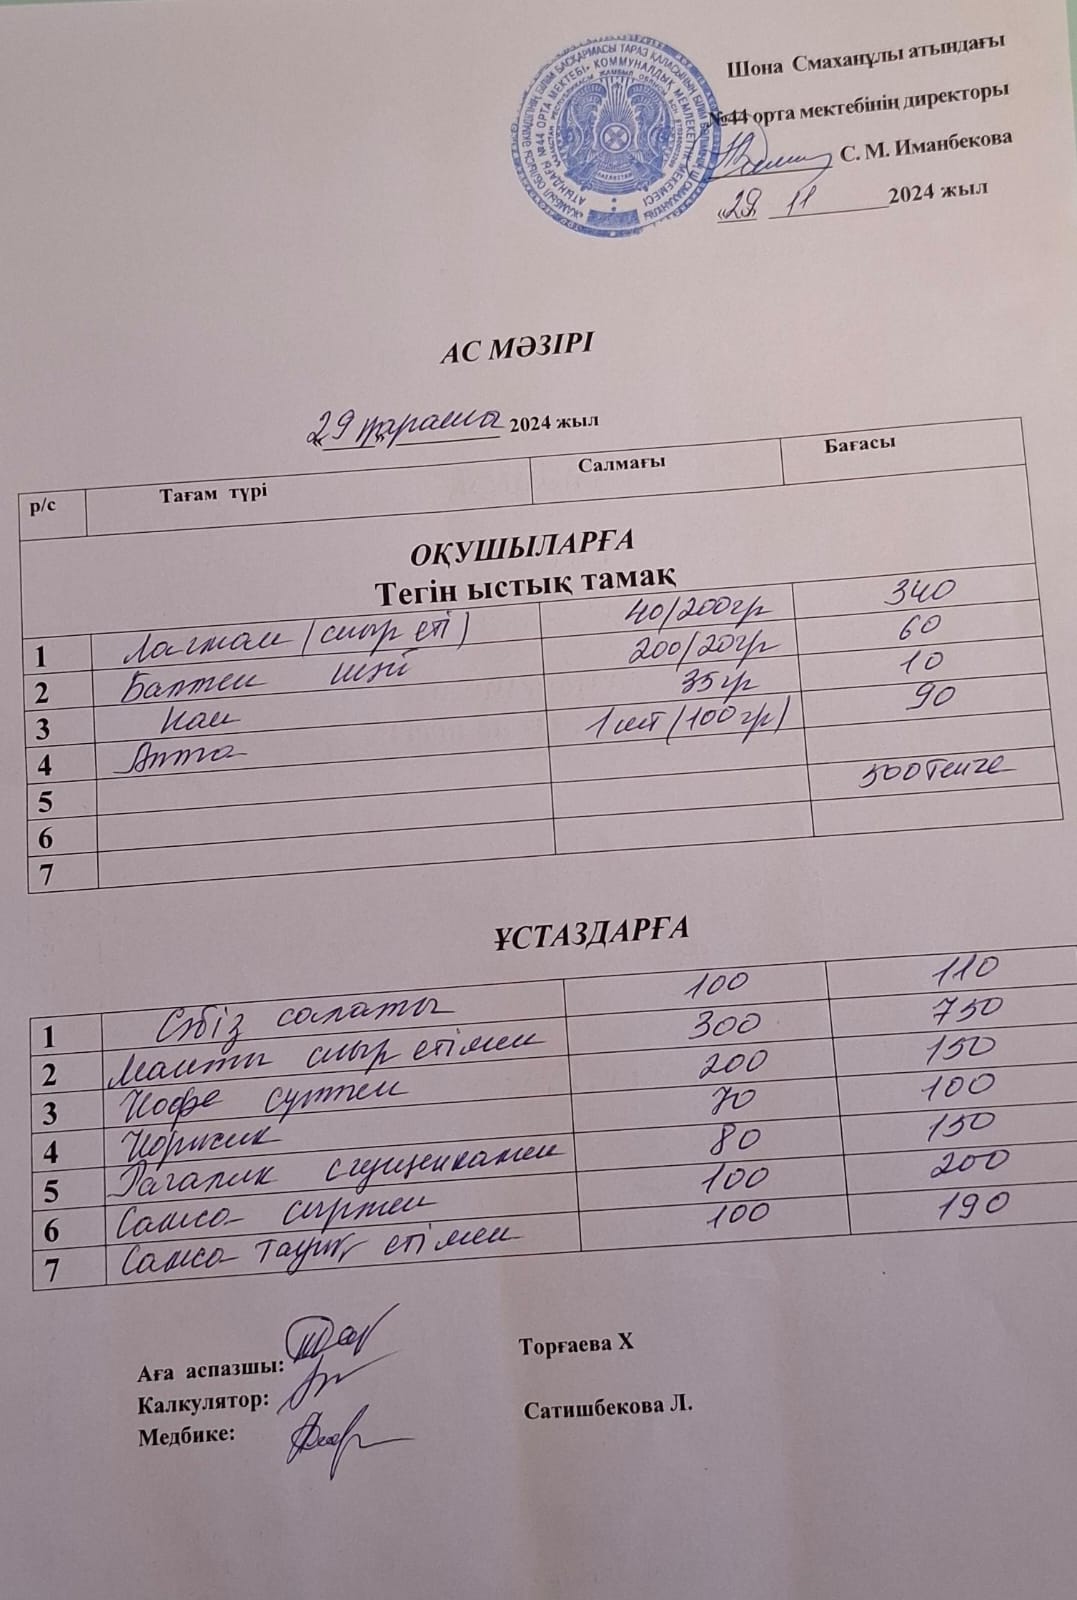 Шона Смаханұлы атындағы
№44 орта мектебінің директоры
С. М. Иманбекова
«29» 11 2024 жыл
АС МӘЗІРІ
«29» қараша 2024 жыл
р/с Тағам түрі Салмағы Бағасы
ОҚУШЫЛАРҒА
Тегін ыстық тамақ
1 Лагман (сиыр еті) 40/200гр 340
2 Балмен шәй 200/20гр 60
3 Нан 35гр 10
4 Алма 1шт (100гр) 90
5
6 500 теңге
7
ҰСТАЗДАРҒА
1 Сәбіз салаты 100 110
2 Манты сиыр етімен 300 750
3 Кофе сүтпен 200 150
4 Коржик 70 100
5 Рагалик сгущенкамен 80 150
6 Самса сырмен 100 200
7 Самса тауық етімен 100 190
Аға аспазшы: Торғаева Х
Калкулятор:
Медбике: Сатишбекова Л.